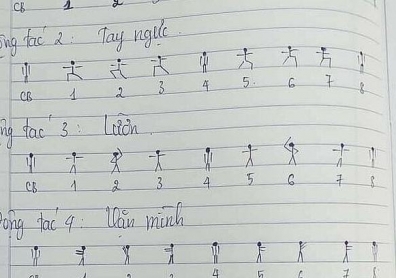 CB 1 2
ộng tác 2: Tay ngực.
CB 1 2 3 4 5. 6 7 8
ng tác 3: Lườn.
CB 1 2 3 4 5 6 7 8
ộng tác 4: Vặn mình
4 5 6 7 8